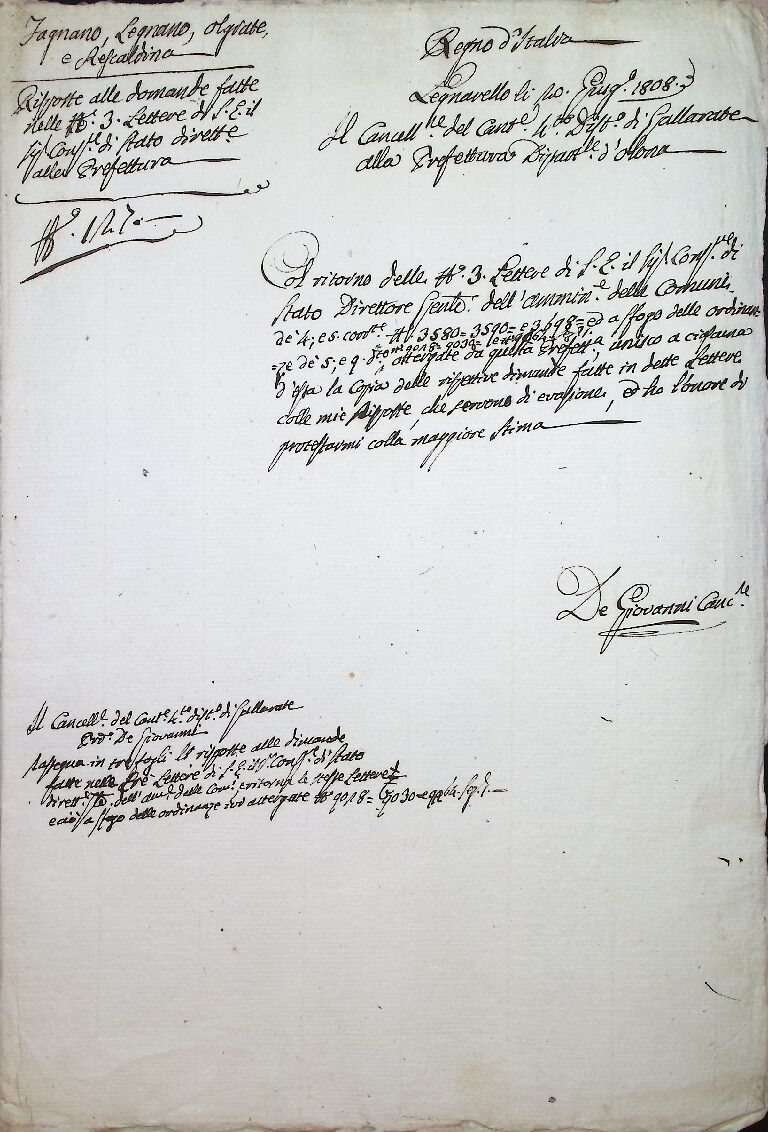 Fagnano, Legnano, Olgiate,
e Rescaldina
Risposte alle domande fatte
nelle N.° 3. Lettere di S. E. il
Sig.r Cons.re di Stato Dirett.e
alla Prefettura
N.° 127.
Regno d'Italia
Legnarello li 10. Giug.° 1808.
Il Cancell.re del Cant.e 4.to Dist.o di Gallarate
alla Prefettura Dipart.le d'Olona
Col ritorno delle N.° 3. Lettere di S. E. il Sig.r Cons.re di
Stato Direttore Gen.le dell'ammin.e delle Comuni
de' 4; e 5. corr.te N. 3580 = 3590 = e 3698 = ed a sfogo delle ordinan
=ze de' 5; e 9. d.to N. 9018 = 9030 =
attergate da questa Prefett.a, unisco a ciascuna
d'essa la Copia delle rispettive dimande fatte in dette Lettere
colle mie risposte, che servono di evasione, ed ho l'onore di
protestarmi colla maggiore stima
De Giovanni Canc.re
Il Cancell.e del Cant.e 4.to Dist.o di Gallarate
De Giovanni
rassegna in tre fogli le risposte alle dimande
fatte nelle tre Lettere di S. E. il S.r Cons.re di Stato
Dirett.e dell'am.e delle Com.i e ritorna le stesse Lettere
e ciò a sfogo delle ordinanze ivi attergate N. 9018 = 9030 =